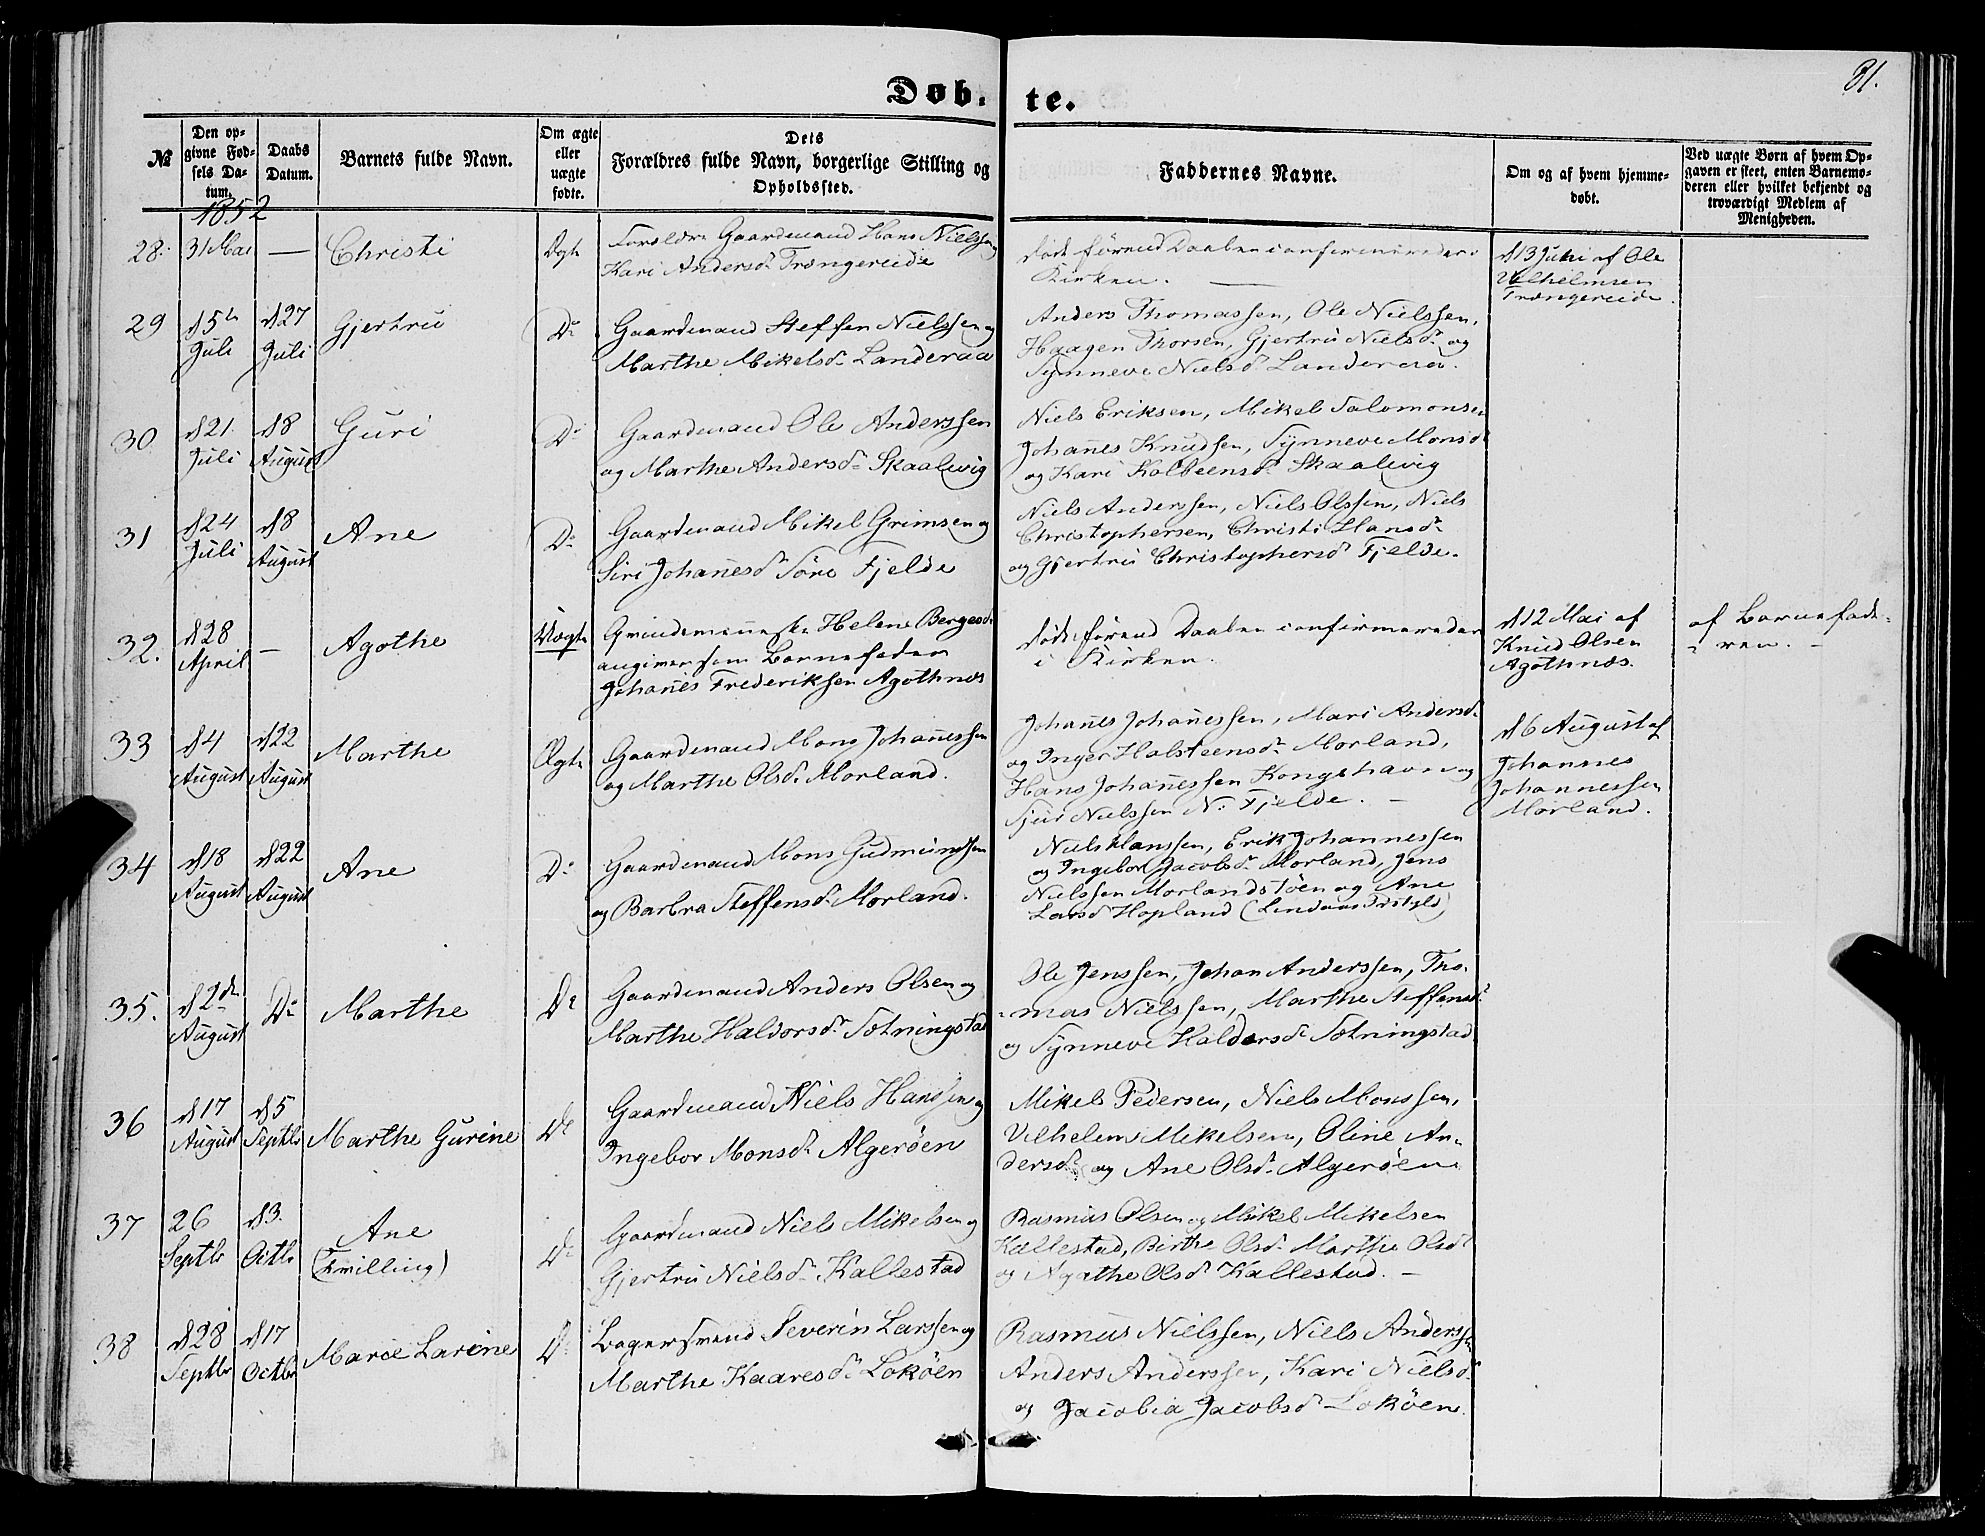 Døb-te.
81.
№
Den op-
givne Fød-
sels Da-
tum.
Daabs
Datum.
Barnets fulde Navn.
Om ægte
eller
uægte
fødte.
Dets
Forældres fulde Navn, borgerlige Stilling og
Opholdssted.
Faddernes Navne.
Om og af hvem hjemme-
døbt.
Ved uægte Børn af hvem Op-
gaven er skeet, enten Barnemo-
deren eller hvilket bekjendt og
troværdigt Medlem af
Menigheden.
1852
28.
31 Mai
—
Christi
Ægte
Forældre Gaardmand Hans Nielssen
Kari Andersdr Trængereide
døde førend Daaben confirmeredes i
Kirken. —
d 13 Juni af Ole
Vilhelmsen
Trængereide.
29
d 5te
Juli
d 27
Juli
Gjertru
Do
Gaardmand Steffen Nielssen og
Marthe Mikelsdr Landeraa
Anders Thomassen, Ole Nielssen,
Haagen Thorsen, Gjertru Nielsdr og
Synneve Nielsdr Landeraa.
30
d 21
Juli
d 8
August
Guri
Do
Gaardmand Ole Anderssen
og Marthe Andersdr Skaalevig
Niels Eriksen, Mikel Salomonsen
Johanes Knudsen, Synneve Monsdr
og Kari Kolbeensdr Skaalevig
31
d 24
Juli
d 8
August
Ane
Do
Gaardmand Mikel Grimsen og
Siri Johanesdr Søre Fjelde
Niels Anderssen, Niels Olssen, Niels
Christophersen, Christi Hansdr
og Gjertru Christophersdr Fjelde.
32.
d 28
April
—
Agothe
Uægte
Qvindemenneske Helene Bergesdr
angiver som Barnefader
Johanes Frederiksen Agothnæs
døde førend Daaben confirmeredes
i Kirken.
d 12 Mai af
Knud Olsen
Agothnæs.
af Barnefade-
ren. —
33
d 4
August
d 22
August
Marthe
Ægte
Gaardmand Mons Johanessen
og Marthe Olsdr Morland.
Johanes Johanessen, Mari Andersdr
og Inger Halsteensdr Morland,
Hans Johanessen Kongshavn og
Sjur Nielssen N. Fjelde. —
d 6 August af
Johannes
Johannessen
Morland.
34
d 18
August
d 22
August
Ane
Do
Gaardmand Mons Gudmundsen
og Barbra Steffensdr Morland.
Niels Hanssen, Erik Johannessen
og Ingebor Jacobsdr Morland, Jens
Nielssen Morlandstøen og Ane
Larsdr Hopland (Lindaas Prstgld)
35.
d 2den
August
Do
Marthe
Do
Gaardmand Anders Olsen og
Marthe Haldorsdr Tøtningstad
Ole Jenssen, Johan Anderssen, Tho-
mas Nielssen, Marthe Steffensdr
og Synneve Haldorsdr Tøtningstad
36
d 17
August
d 5
Septbr
Marthe Gurine
Do
Gaardmand Niels Hanssen og
Ingebor Monsdr Algerøen
Mikel Pedersen, Niels Monssen,
Vilhelm Mikelsen, Oline An-
dersdr og Ane Olsdr Algerøen
37
26
Septbr
d 3
Octbr
Ane
(Tvilling)
Do
Gaardmand Niels Mikelsen og
Gjertru Nielsdr Kallestad
Rasmus Olsen og Mikel Mikelsen
Kallestad, Birthe Olsdr Marthe Olsdr
og Agathe Olsdr Kallestad. —
38
d 28
Septbr
d 17
Octbr
Marie Larine
Do
Severin Larssen og
Marthe Kaaresdr Lokøen
Rasmus Nielssen, Niels Anderssen
Anders Anderssen, Kari Nielsdr
og Jacobia Jacobsdr Lokøen.